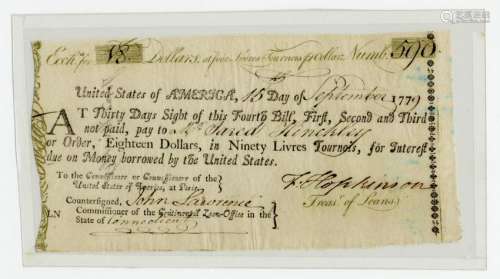 Exch.ᵃ for 18 Dollars, at five Livres Tournois ꝑ Dollar, Numb. 590
United States of AMERICA, 15 Day of September 1779
AT Thirty Days Sight of this Fourth Bill, First, Second and Third
not paid, pay to Mr Jared Hinckley
or Order, Eighteen Dollars, in Ninety Livres Tournois, for Interest
due on Money borrowed by the United States.
To the Commissioner or Commissioners of the
United States of America, at Paris.
F Hopkinson
Treasʳ. of Loans.
Countersigned, John Lawrence
LN Commissioner of the Continental Loan-Office in the
State of Connecticut